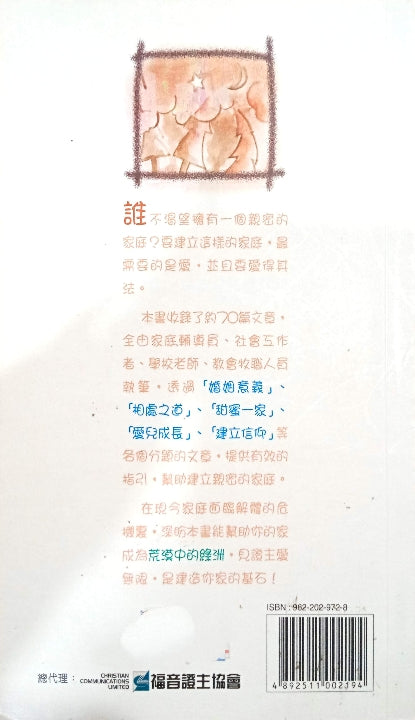 誰不渴望擁有一個親密的
家庭？要建立這樣的家庭，最
需要的是愛，並且要愛得其
法。
本書收錄了約70篇文章，
全由家庭輔導員、社會工作
者、學校老師、教會牧職人員
執筆。透過「婚姻意義」、
「相處之道」、「甜蜜一家」、
「愛兒成長」、「建立信仰」等
各個分題的文章，提供有效的
指引，幫助建立親密的家庭。
在現今家庭面臨解體的危
機裏，深盼本書能幫助你的家
成為荒漠中的綠洲，見證主愛
無限，是建造你家的基石！
ISBN : 962-202-972-8
4 892511 002194
總代理：CHRISTIAN COMMUNICATIONS LIMITED 福音證主協會